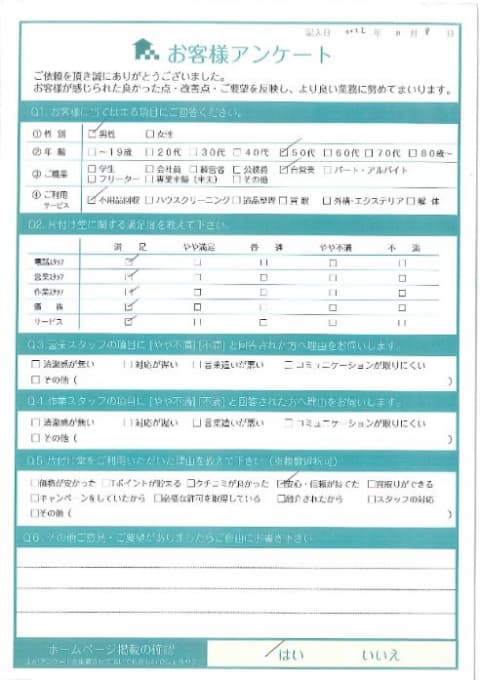 記入日 2022 年 11 月 8 日
お客様アンケート
ご依頼を頂き誠にありがとうございました。
お客様が感じられた良かった点・改善点・ご要望を反映し、より良い業務に努めてまいります。
Q1. お客様に当てはまる項目にご回答ください。
①性 別 ☑男性 □女性
②年 齢 □～19歳 □20代 □30代 □40代 ☑50代 □60代 □70代 □80歳～
③ご職業 □学生 □会社員 □経営者 □公務員 ☑自営業 □パート・アルバイト
□フリーター □専業主婦（主夫） □その他
④ご利用サービス ☑不用品回収 □ハウスクリーニング □遺品整理 □買取 □外構・エクステリア □解体
Q2. 片付け堂に関する満足度を教えて下さい。
満足 やや満足 普通 やや不満 不満
電話スタッフ ☑ □ □ □ □
営業スタッフ ☑ □ □ □ □
作業スタッフ ☑ □ □ □ □
価 格 ☑ □ □ □ □
サービス ☑ □ □ □ □
Q3. 営業スタッフの項目に [やや不満] [不満] と回答された方へ理由をお伺いします。
□清潔感が無い □対応が遅い □言葉遣いが悪い □コミュニケーションが取りにくい
□その他（ ）
Q4. 作業スタッフの項目に [やや不満] [不満] と回答された方へ理由をお伺いします。
□清潔感が無い □対応が遅い □言葉遣いが悪い □コミュニケーションが取りにくい
□その他（ ）
Q5. 片付け堂をご利用いただいた理由を教えて下さい（※複数選択可）
□価格が安かった □Tポイントが貯まる □クチコミが良かった ☑安心・信頼が持てた □買取りができる
□キャンペーンをしていたから □必要な許可を取得している □紹介されたから □スタッフの対応
□その他（ ）
Q6. その他ご意見・ご要望がありましたらご自由にお書き下さい
ホームページ掲載の確認
はい いいえ